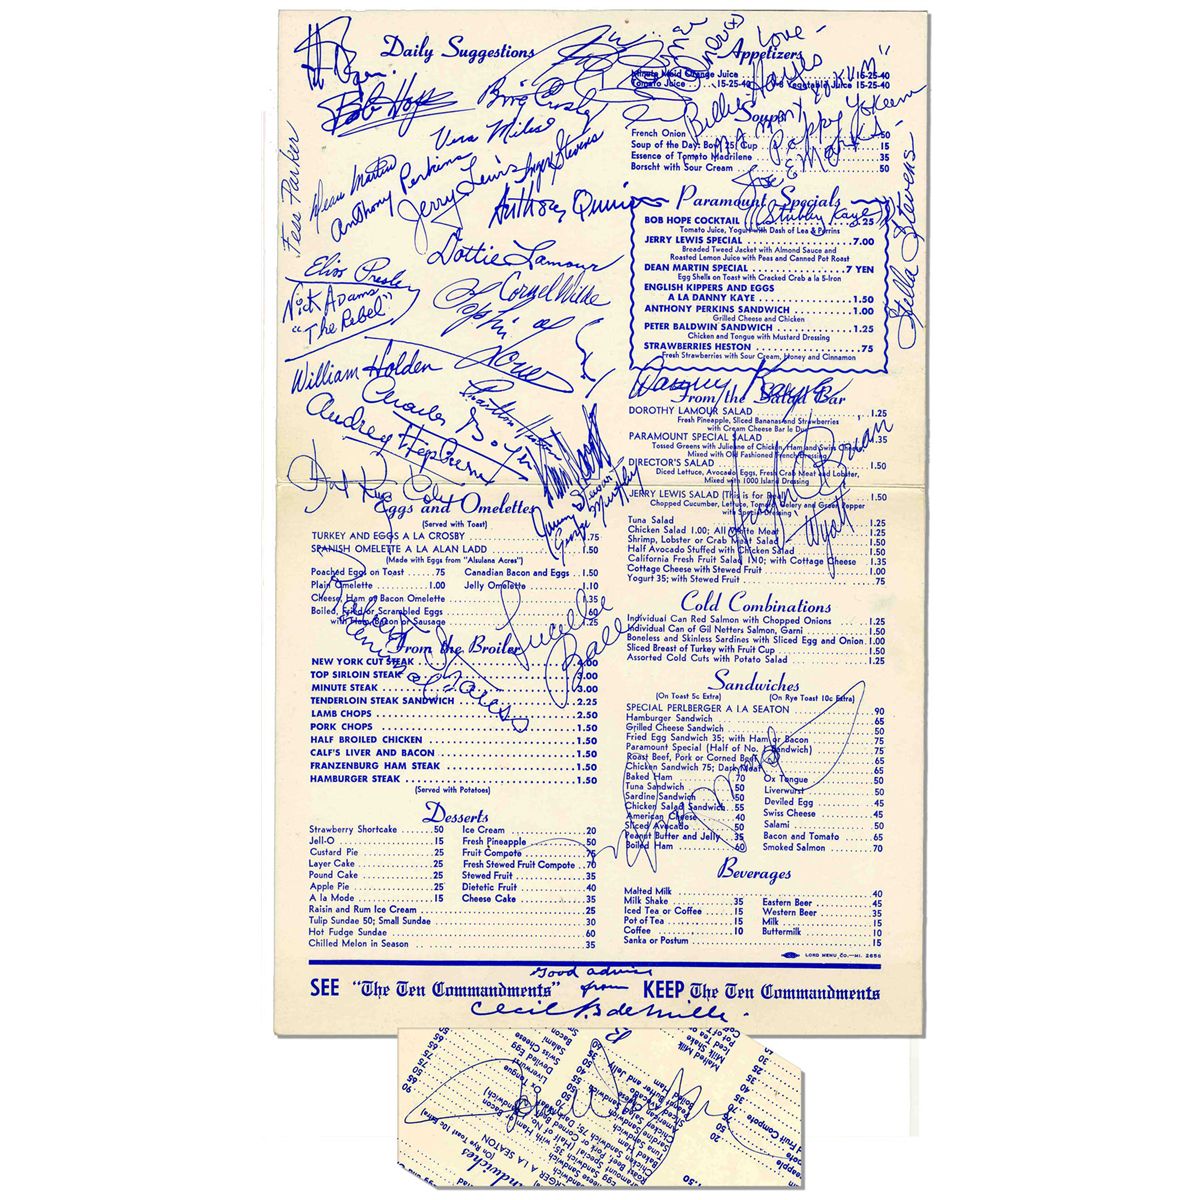 Daily Suggestions
Bob Hope
Bing Crosby
Vera Miles
Dean Martin
Anthony Perkins
Jerry Lewis
Inger Stevens
Anthony Quinn
Fess Parker
Dottie Lamour
Elvis Presley
Nick Adams
"The Rebel"
Cornel Wilde
Sophia Loren
William Holden
Charles Boyer
Charlton Heston
Audrey Hepburn
Nat King Cole
Jimmy Stewart
George Murphy
Eggs and Omelettes
(Served with Toast)
TURKEY AND EGGS A LA CROSBY .75
SPANISH OMELETTE A LA ALAN LADD 1.50
(Made with Eggs from "Alsulana Acres")
Poached Eggs on Toast .75 Canadian Bacon and Eggs 1.50
Plain Omelette 1.00 Jelly Omelette 1.10
Cheese, Ham or Bacon Omelette 1.35
Boiled, Fried or Scrambled Eggs .60
with Ham, Bacon or Sausage 1.25
Lucille
Ball
Robert
From the Broiler
NEW YORK CUT STEAK 4.00
TOP SIRLOIN STEAK 3.00
MINUTE STEAK 3.00
TENDERLOIN STEAK SANDWICH 2.25
LAMB CHOPS 2.50
PORK CHOPS 1.50
HALF BROILED CHICKEN 1.50
CALF'S LIVER AND BACON 1.50
FRANZENBURG HAM STEAK 1.50
HAMBURGER STEAK 1.50
(Served with Potatoes)
Desserts
Strawberry Shortcake .50 Ice Cream .20
Jell-O .15 Fresh Pineapple .50
Custard Pie .25 Fruit Compote .75
Layer Cake .25 Fresh Stewed Fruit Compote .70
Pound Cake .25 Stewed Fruit .35
Apple Pie .25 Dietetic Fruit .40
A la Mode .15 Cheese Cake .35
Raisin and Rum Ice Cream .25
Tulip Sundae 50; Small Sundae .30
Hot Fudge Sundae .60
Chilled Melon in Season .35
Appetizers
Minute Maid Orange Juice 15-25-40
Tomato Juice 15-25-40 V-8 Vegetable Juice 15-25-40
Love -
Billie Hayes
"Mammy Yokum"
Pappy Yokum
Joe E Marks -
Soups
French Onion .50
Soup of the Day: Bowl 25; Cup .15
Essence of Tomato Madrilene .35
Borscht with Sour Cream .50
Paramount Specials
Stubby Kaye
Stella Stevens
BOB HOPE COCKTAIL .25
Tomato Juice, Yogurt with Dash of Lea & Perrins
JERRY LEWIS SPECIAL 7.00
Breaded Tweed Jacket with Almond Sauce and
Roasted Lemon Juice with Peas and Canned Pot Roast
DEAN MARTIN SPECIAL 7 YEN
Egg Shells on Toast with Cracked Crab a la 5-Iron
ENGLISH KIPPERS AND EGGS
A LA DANNY KAYE 1.50
ANTHONY PERKINS SANDWICH 1.00
Grilled Cheese and Chicken
PETER BALDWIN SANDWICH 1.25
Chicken and Tongue with Mustard Dressing
STRAWBERRIES HESTON .75
Fresh Strawberries with Sour Cream, Honey and Cinnamon
Danny Kaye
From the Salad Bar
DOROTHY LAMOUR SALAD 1.25
Fresh Pineapple, Sliced Bananas and Strawberries
with Cream Cheese Bar le Duc
PARAMOUNT SPECIAL SALAD 1.35
Tossed Greens with Julienne of Chicken, Ham and Swiss Cheese
Mixed with Old Fashioned French Dressing
DIRECTOR'S SALAD 1.50
Diced Lettuce, Avocado, Eggs, Fresh Crab Meat and Lobster,
Mixed with 1000 Island Dressing
JERRY LEWIS SALAD (This is for Real) 1.50
Chopped Cucumber, Lettuce, Tomato, Celery and Green Pepper
with Special Dressing
Hugh O'Brian
Wyatt
Tuna Salad 1.25
Chicken Salad 1.00; All White Meat 1.25
Shrimp, Lobster or Crab Meat Salad 1.50
Half Avocado Stuffed with Chicken Salad 1.50
California Fresh Fruit Salad 1.10; with Cottage Cheese 1.35
Cottage Cheese with Stewed Fruit 1.00
Yogurt 35; with Stewed Fruit .75
Cold Combinations
Individual Can Red Salmon with Chopped Onions 1.25
Individual Can of Gil Netters Salmon, Garni 1.50
Boneless and Skinless Sardines with Sliced Egg and Onion 1.00
Sliced Breast of Turkey with Fruit Cup 1.50
Assorted Cold Cuts with Potato Salad 1.25
Sandwiches
(On Toast 5c Extra) (On Rye Toast 10c Extra)
SPECIAL PERLBERGER A LA SEATON .90
Hamburger Sandwich .65
Grilled Cheese Sandwich .50
Fried Egg Sandwich 35; with Ham or Bacon .75
Paramount Special (Half of No. 1 Sandwich) .75
Roast Beef, Pork or Corned Beef .65
Chicken Sandwich 75; Dark Meat .65
Baked Ham .70 Ox Tongue .50
Tuna Sandwich .50 Liverwurst .50
Sardine Sandwich .50 Deviled Egg .45
Chicken Salad Sandwich .55 Swiss Cheese .45
American Cheese .40 Salami .50
Sliced Avocado .50 Bacon and Tomato .65
Peanut Butter and Jelly .35 Smoked Salmon .70
Boiled Ham .60
Beverages
Malted Milk .40
Milk Shake .35 Eastern Beer .45
Iced Tea or Coffee .15 Western Beer .35
Pot of Tea .15 Milk .15
Coffee .10 Buttermilk .10
Sanka or Postum .15
LORD MENU CO.
Good advise
from
SEE "The Ten Commandments" KEEP The Ten Commandments
Cecil B deMille